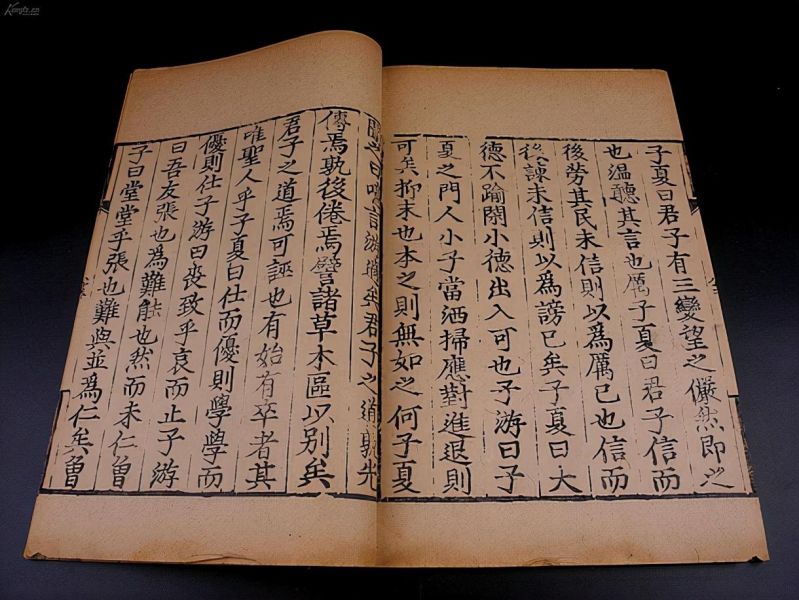 子夏曰君子有三變望之儼然即之
也温聽其言也厲子夏曰君子信而
後勞其民未信則以爲厲已也信而
後諫未信則以爲謗已矣子夏曰大
德不踰閑小德出入可也子游曰子
夏之門人小子當洒掃應對進退則
可矣抑末也本之則無如之何子夏
聞之曰噫言游過矣君子之道孰先
傳焉孰後倦焉譬諸草木區以別矣
君子之道焉可誣也有始有卒者其
唯聖人乎子夏曰仕而優則學學而
優則仕子游曰喪致乎哀而止子游
曰吾友張也爲難能也然而未仁曾
子曰堂堂乎張也難與並爲仁矣曾